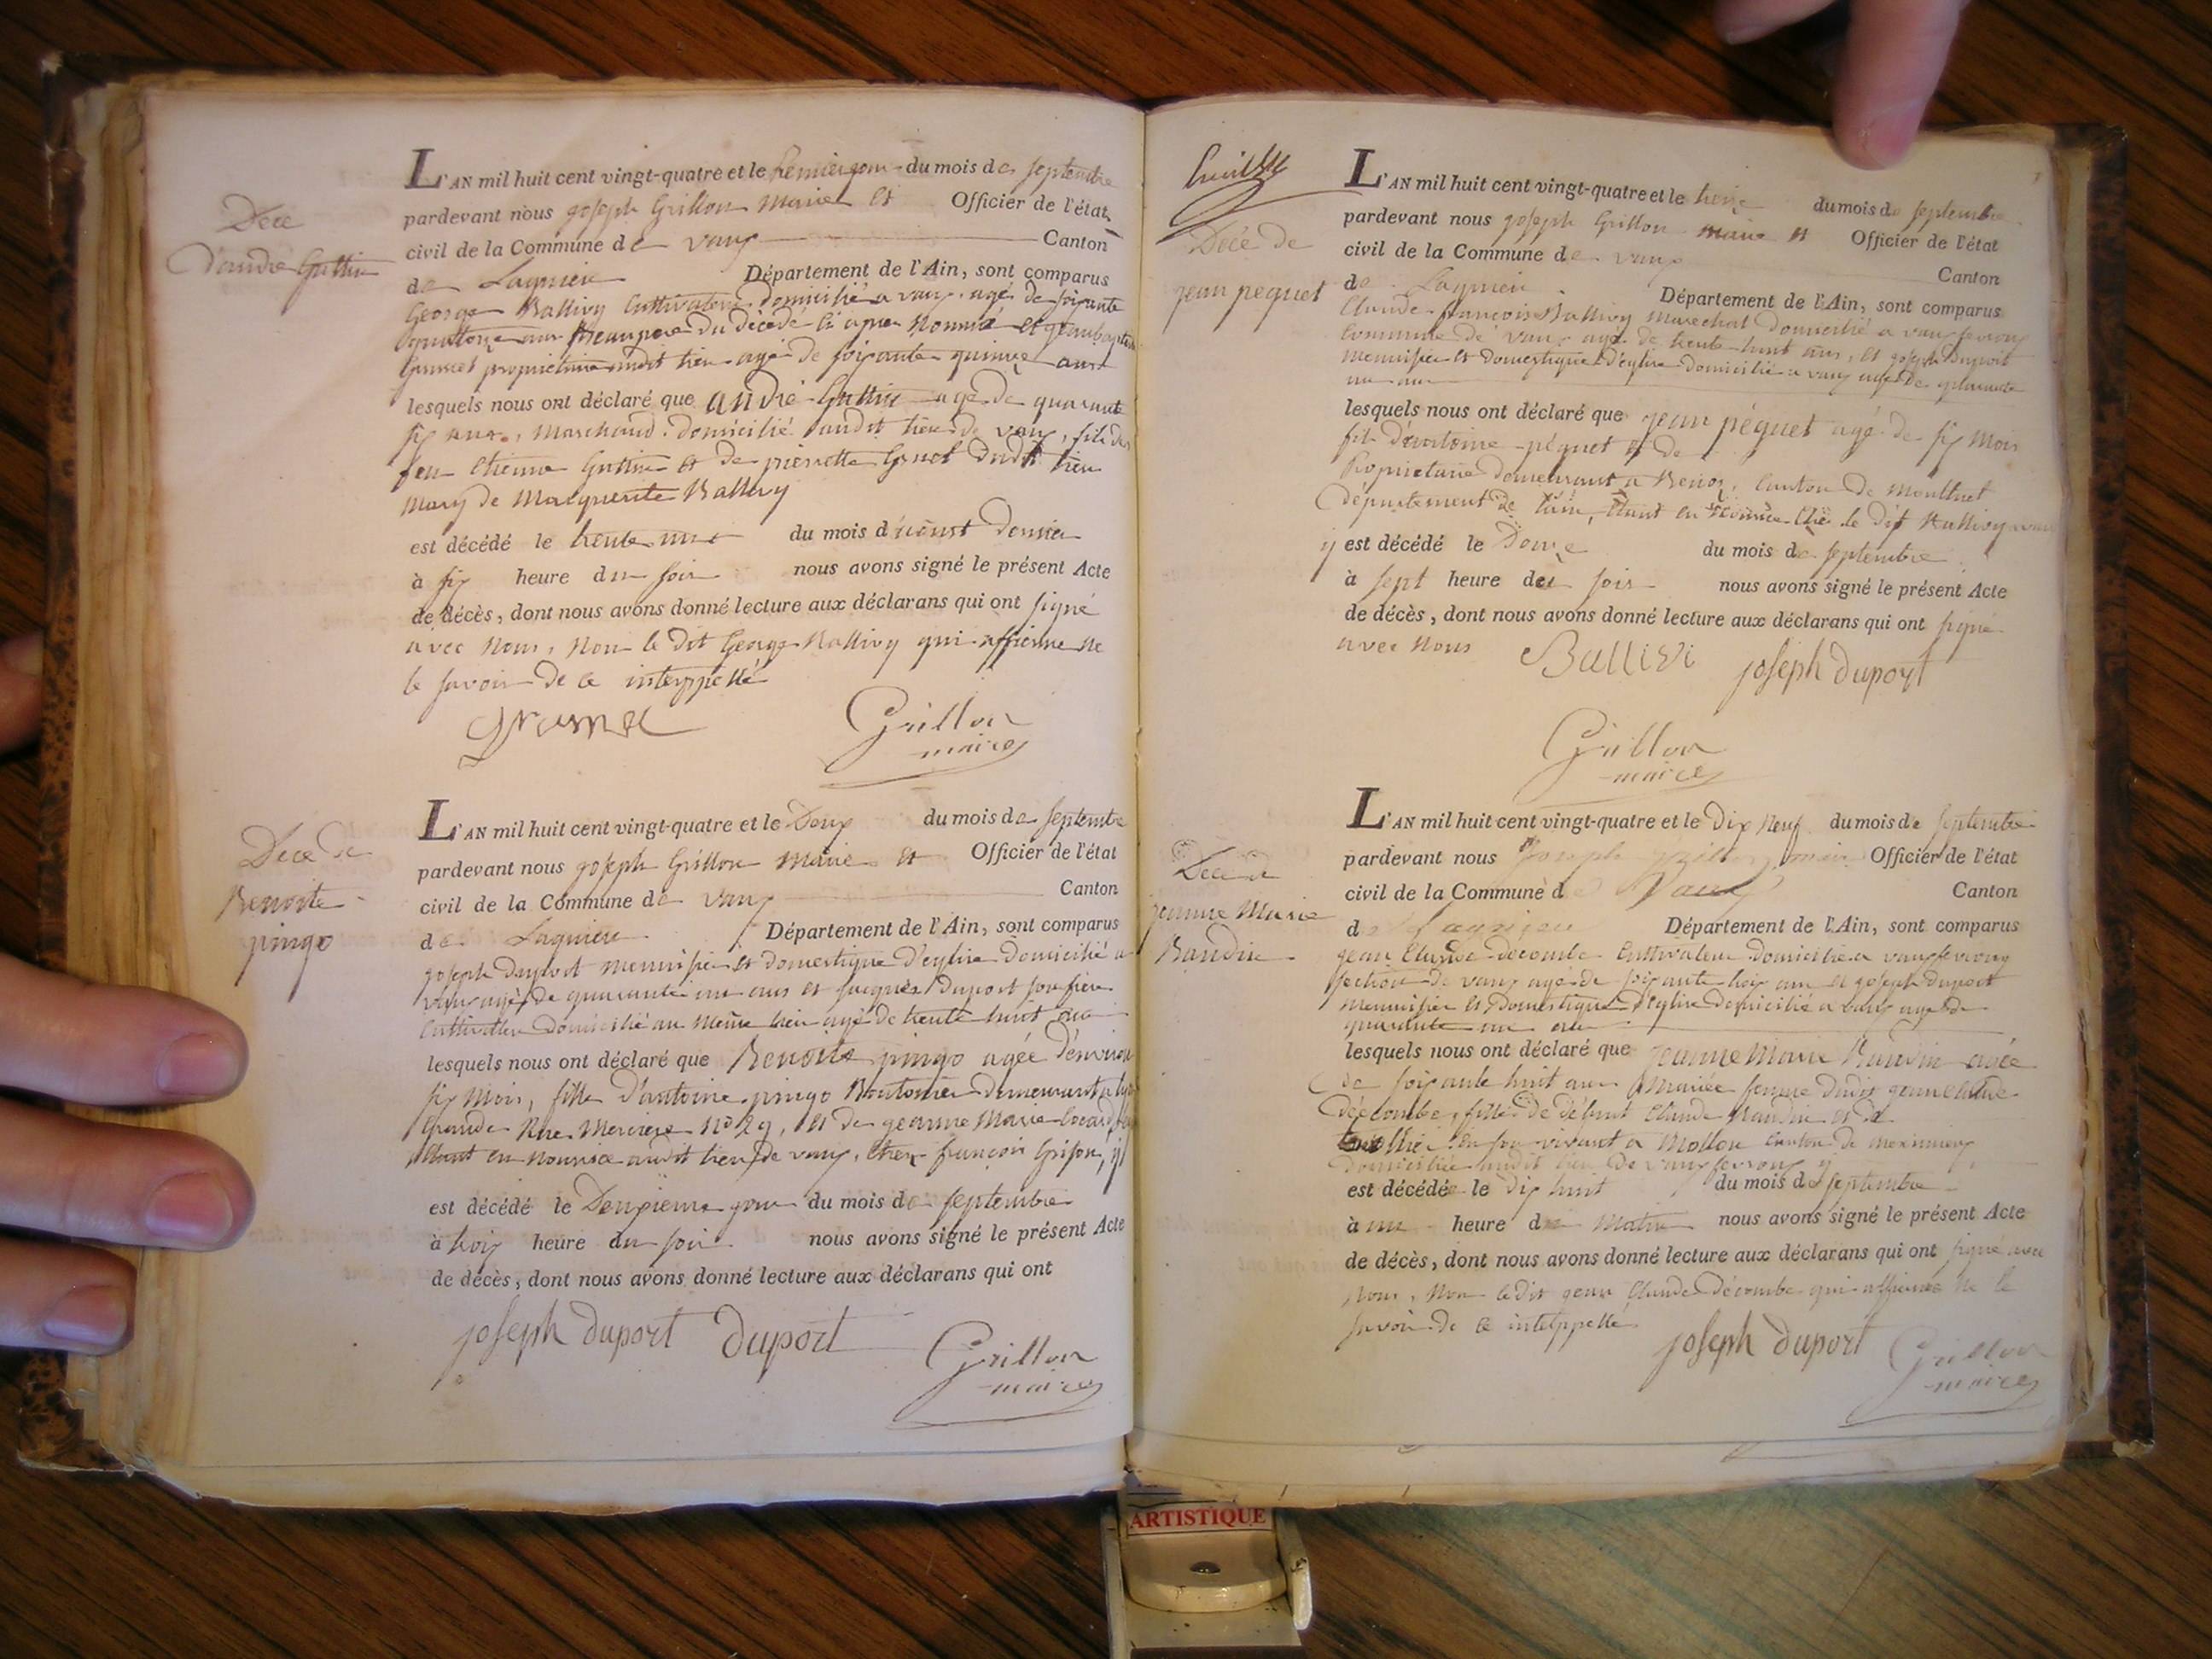 Décè
d'andré Guttin
L'AN mil huit cent vingt-quatre et le premier jour du mois de septembre
pardevant nous joseph Grillon maire et Officier de l'état
civil de la Commune de vaux Canton
de Lagnieu Département de l'Ain, sont comparus
George Ballivy Cultivateur domicilié a vaux agé de soixante
quatorze ans Beaupere du décédé ci apres nommé et jeanbaptiste
propriétaire audit lieu agé de soixante quinze ans
lesquels nous ont déclaré que andré Guttin agé de quarante
six ans, marchand domicilié audit lieu de vaux, fils de
feu etienne Guttin et de pierrette dudit lieu
mary de Marguerite Ballivy
est décédé le trente une du mois d'aoust dernier
à six heure du soir nous avons signé le présent Acte
de décès, dont nous avons donné lecture aux déclarans qui ont signé
avec nous, non le dit George Ballivy qui affirme ne
le savoir de ce interppellé
Grillon
maire
Décè de
Benoite
pingo
L'AN mil huit cent vingt-quatre et le Deux du mois de septembre
pardevant nous joseph Grillon maire et Officier de l'état
civil de la Commune de vaux Canton
de Lagnieu Département de l'Ain, sont comparus
joseph Duport menuisier et domestique d'eglise domicilié a
vaux agé de quarante un ans et jacques Duport son frere
cultivateur domicilié au même lieu agé de trente huit ans
lesquels nous ont déclaré que Benoite pingo agée d'environ
six mois, fille d'antoine pingo demeurant a lyon
Grande Rue Merciere N° 29, et de jeanne Marie
étant en nourrice audit lieu de vaux, chez françois Grison, y
est décédé le Deuxieme jour du mois de septembre
à trois heure du soir nous avons signé le présent Acte
de décès, dont nous avons donné lecture aux déclarans qui ont
joseph duport duport
Grillon
maire
Décé de
jean pequet
L'AN mil huit cent vingt-quatre et le treize du mois de septembre
pardevant nous joseph Grillon maire et Officier de l'état
civil de la Commune de vaux Canton
de Lagnieu Département de l'Ain, sont comparus
Claude françois Ballivy marechal domicilié a vaux fevroux
Commune de vaux agé de trente huit ans, et joseph Duport
menuisier et domestique d'eglise domicilié a vaux agé de quarante
un ans
lesquels nous ont déclaré que jean péquet agé de six mois
fils d'antoine péquet et de
Propriétaire demeurant a canton de montluel
département de l'ain, étant en nourrice chez le dit Ballivy
y est décédé le Douze du mois de septembre
à sept heure du soir nous avons signé le présent Acte
de décès, dont nous avons donné lecture aux déclarans qui ont signé
avec nous Ballivi joseph duport
Grillon
maire
Décé de
jeanne Marie
Baudin
L'AN mil huit cent vingt-quatre et le dix neuf du mois de septembre
pardevant nous joseph Grillon maire Officier de l'état
civil de la Commune de Vaux Canton
de Lagnieu Département de l'Ain, sont comparus
jean Claude Décombe Cultivateur domicilié a vaux fevroux
section de vaux agé de soixante trois ans et joseph Duport
menuisier et domestique d'eglise domicilié a vaux agé de
quarante un ans
lesquels nous ont déclaré que jeanne Marie Baudin agée
de soixante huit ans mariée femme dudit jean Claude
Décombe, fille de défunt Claude Baudin et de
en son vivant a Mollon canton de meximieux
domiciliée audit lieu de vaux fevroux y
est décédée le dix huit du mois de septembre
à une heure du matin nous avons signé le présent Acte
de décès, dont nous avons donné lecture aux déclarans qui ont signé avec
nous, non le dit jean Claude Décombe qui affirme ne le
savoir de ce interppellé
joseph duport Grillon
maire
ARTISTIQUE